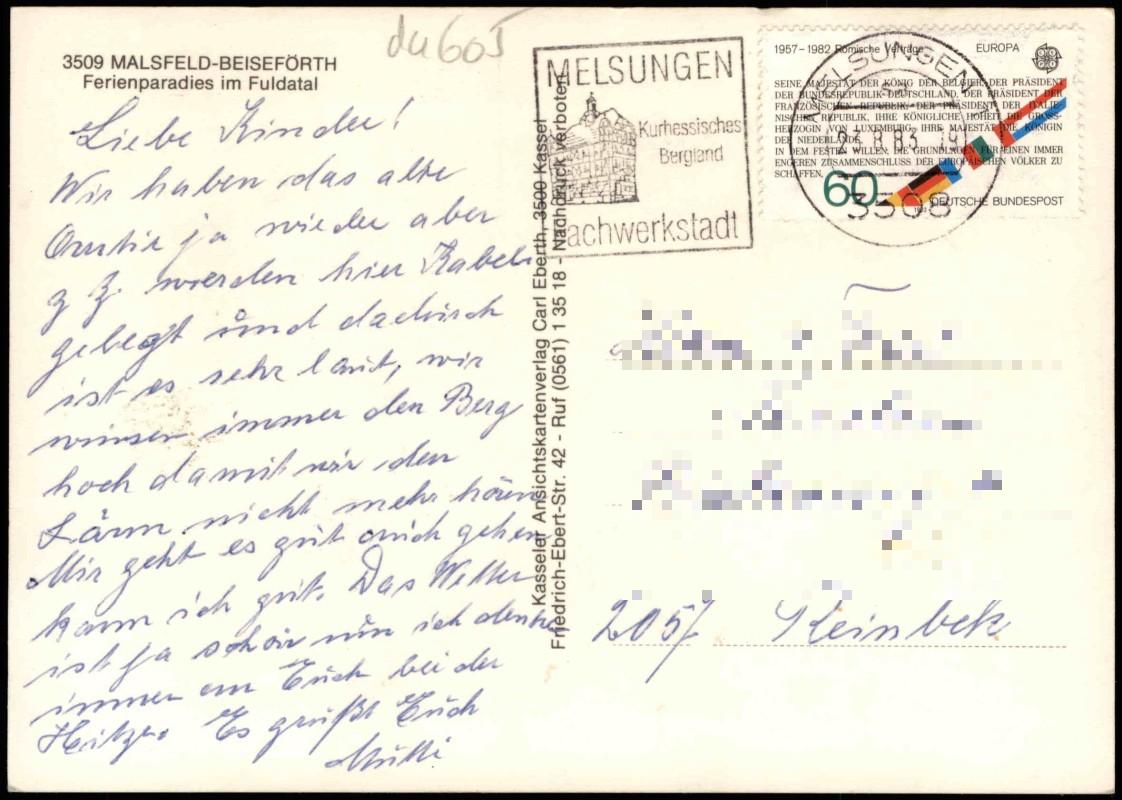 du605
3509 MALSFELD-BEISEFÖRTH
Ferienparadies im Fuldatal
Liebe Kinder!
Wir haben das alte
ja wieder aber
z. Z. werden hier Kabel
gelegt und dadurch
ist es sehr laut, wir
müssen immer den Berg
hoch damit wir den
Lärm nicht mehr hören
Mir geht es gut auch gehen
kann ich gut. Das Wetter
ist ja schön nur ich denke
immer an Euch bei der
Hitze. Es grüßt Euch
Mutti
Kasseler Ansichtskartenverlag Carl Eberth, 3500 Kassel
Friedrich-Ebert-Str. 42 - Ruf (0561) 1 35 18 - Nachdruck verboten
MELSUNGEN
Kurhessisches
Bergland
achwerkstadt
1957-1982 Römische Verträge EUROPA
SEINE MAJESTÄT DER KÖNIG DER BELGIER, DER PRÄSIDENT
DER BUNDESREPUBLIK DEUTSCHLAND, DER PRÄSIDENT DER
FRANZÖSISCHEN REPUBLIK, DER PRÄSIDENT DER ITALIE-
NISCHEN REPUBLIK, IHRE KÖNIGLICHE HOHEIT DIE GROSS-
HERZOGIN VON LUXEMBURG, IHRE MAJESTÄT DIE KÖNIGIN
DER NIEDERLANDE,
IN DEM FESTEN WILLEN, DIE GRUNDLAGEN FÜR EINEN IMMER
ENGEREN ZUSAMMENSCHLUSS DER EUROPÄISCHEN VÖLKER ZU
SCHAFFEN,
60
DEUTSCHE BUNDESPOST
MELSUNGEN 1
8.83
3508
2057 Reinbek